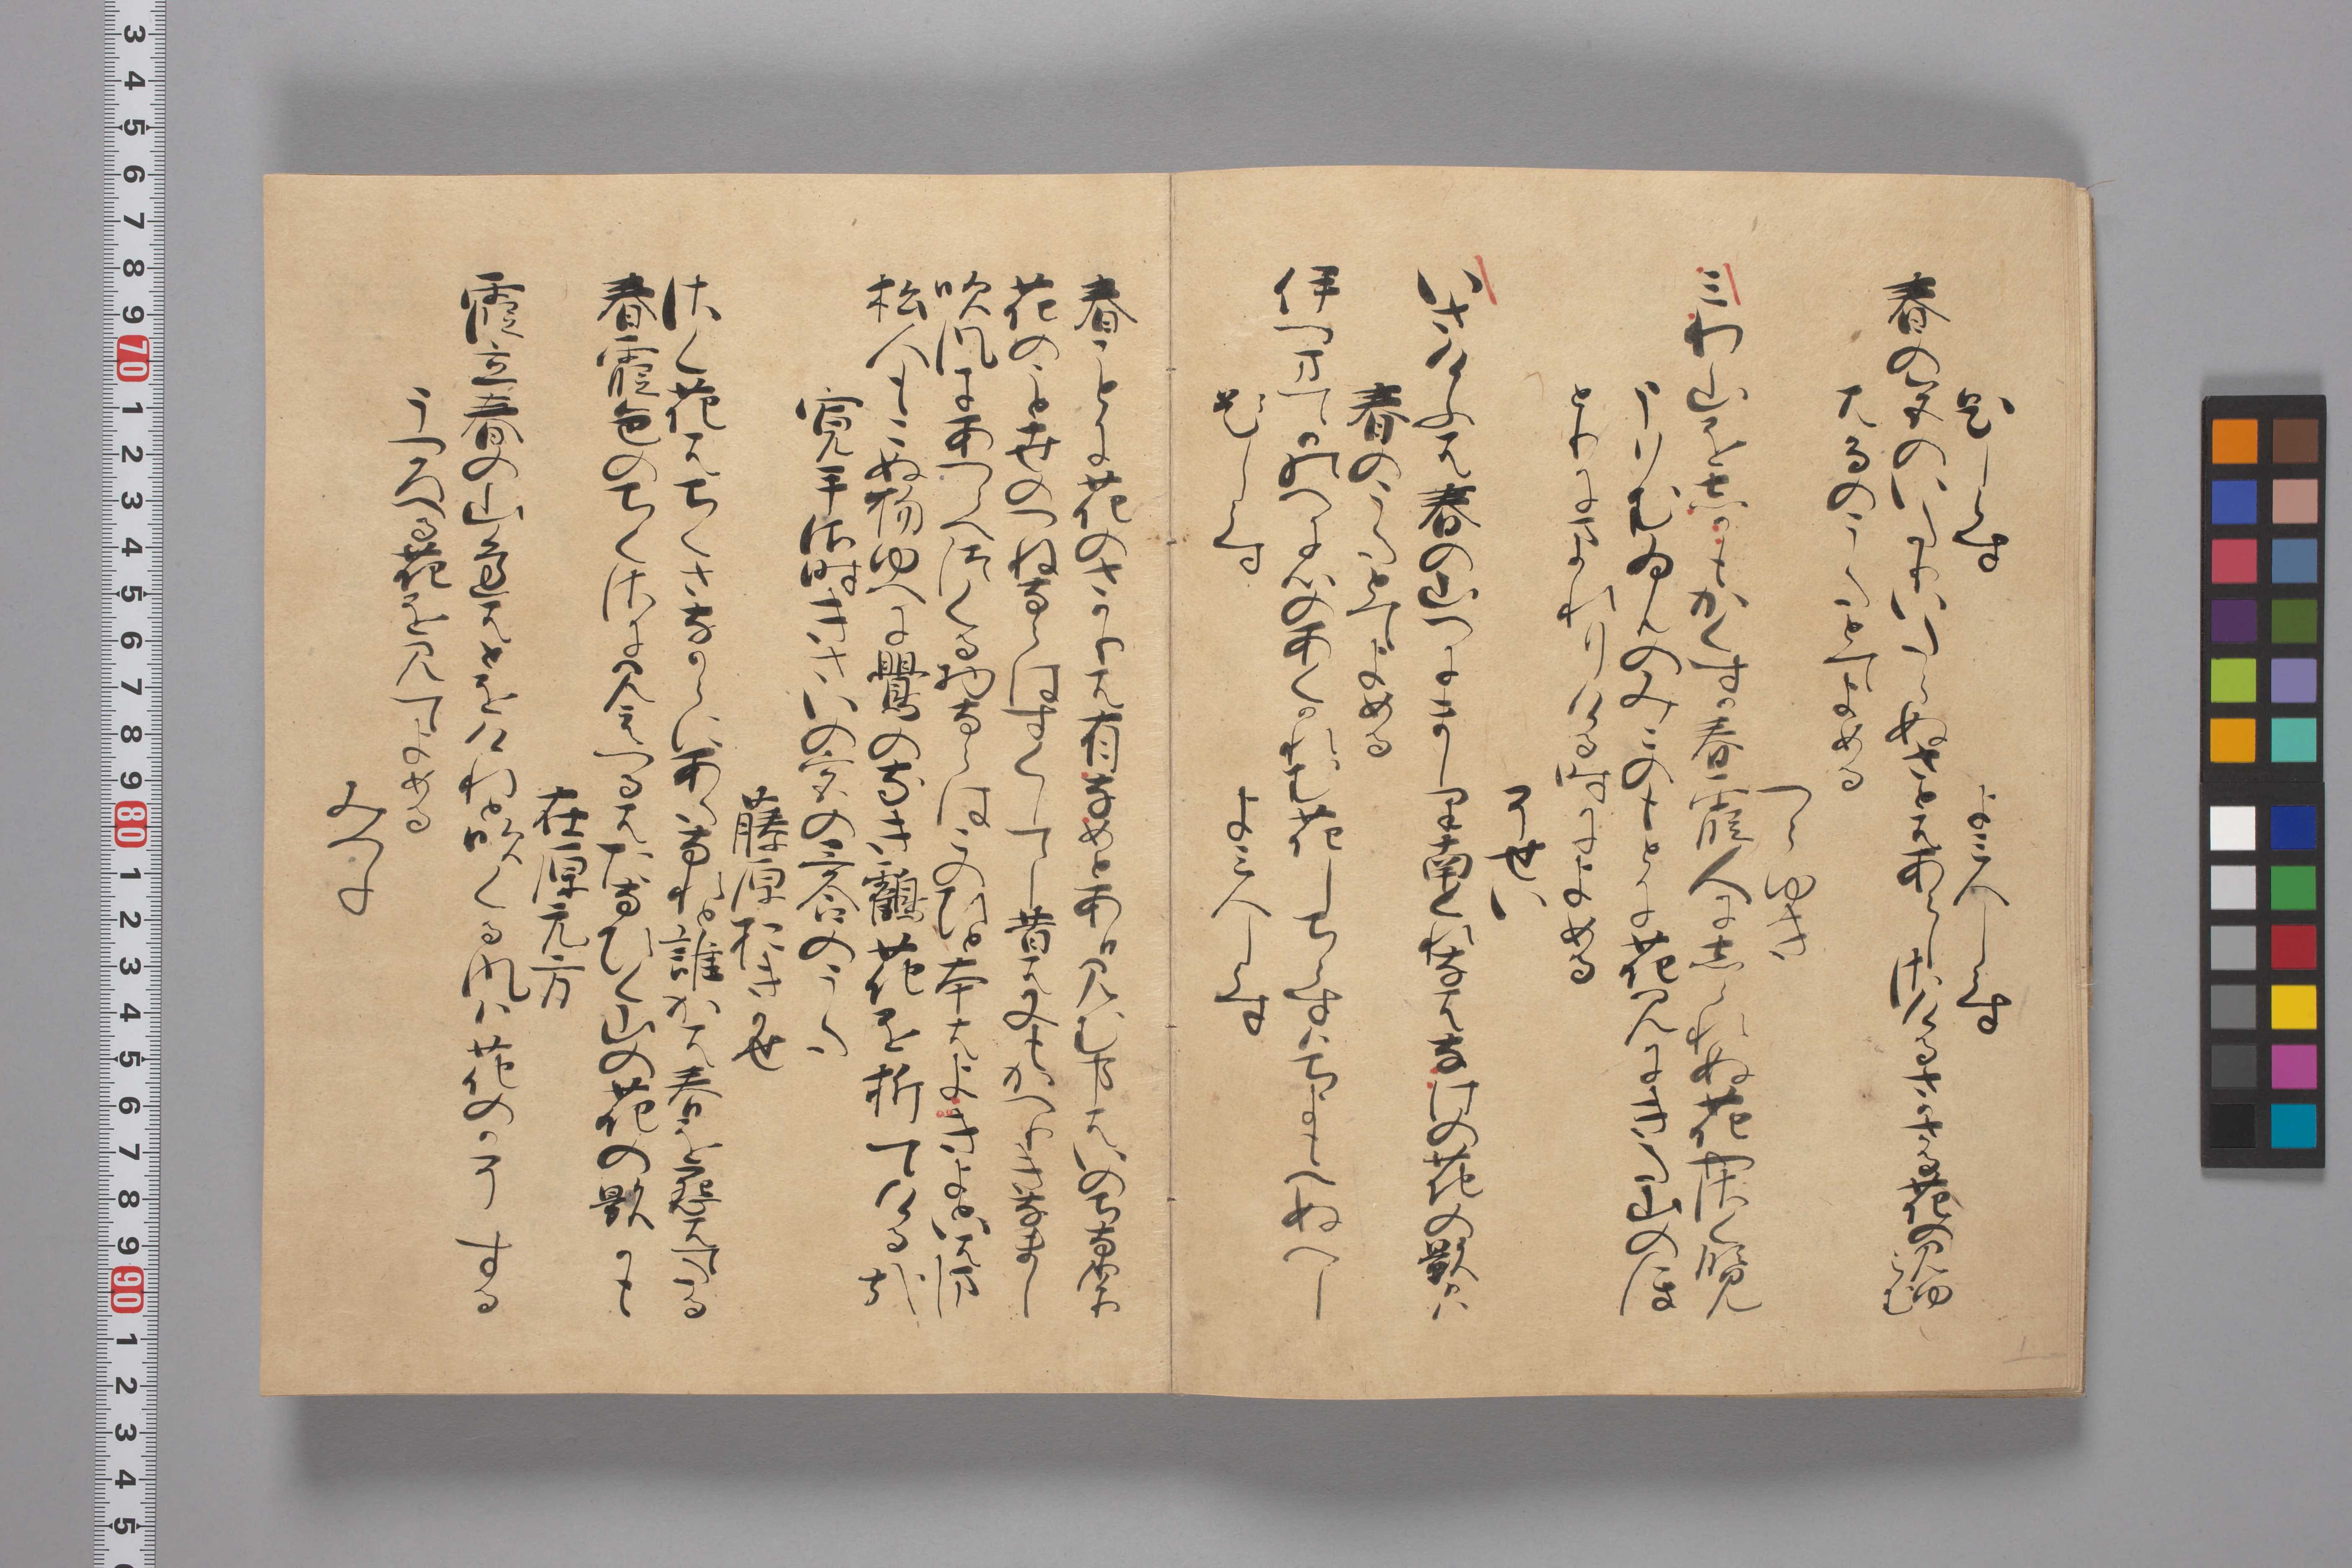 題しらす　よみ人しらす
春の色のいたりいたらぬさとはあらしさけるさかさる花の見ゆらむ
はるのうたとてよめる
つらゆき
三わ山をしかもかくすか春霞人にしられぬ花やさく覧
うりむゐんのみこのもとに花見にきた山のほ
とりにまかれりける時によめる
そせい
いさけふは春の山辺にましりなむ暮なはなけの花の影かは
春のうたとてよめる
伊つまてか野辺に心のあくかれむ花しちらすは千世もへぬへし
題しらす　よみ人しらす
春ことに花のさかりは有なめとあひ見む事はいのちなりけり
花のこと世のつねならはすくしてし昔は又もかへりきなまし
吹風にあつらへつくる物ならはこのひと本はよきよといはまし
松人もこぬ物ゆへに鶯のなきつる花を折てける哉
寛平御時きさいの宮の哥合のうた
藤原おきかせ
さく花は千くさなからにあたなれと誰かは春を怨はてたる
春霞色のちくさに見えつるはたなひく山の花の影かも
在原元方
霞立春の山辺はとをけれと吹くる風は花のかそする
うつろへる花を見てよめる
みつね